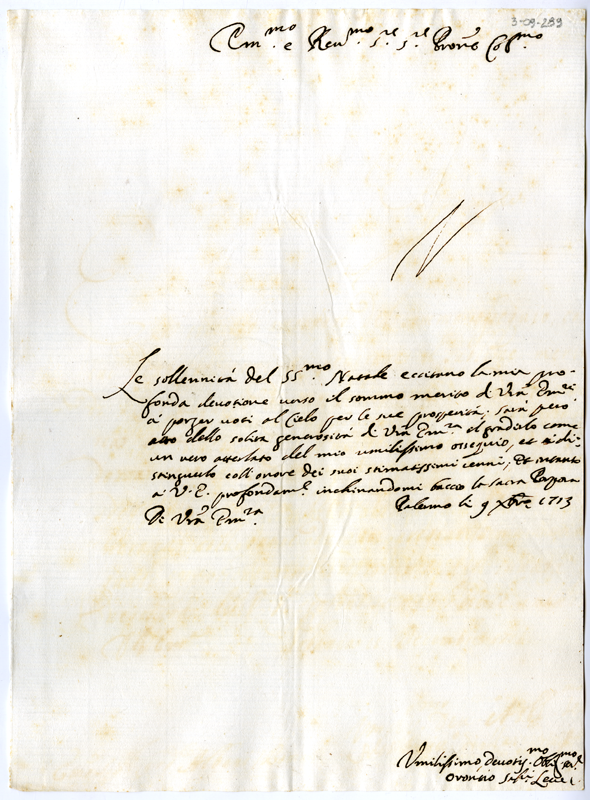 3-09-289
Em.mo e Reu.mo S.r S.r Prōne Col.mo
Le sollennità del SS.mo Natale eccitano la mia pro-
fonda devotione verso il sommo merito di Vrā Em.a
à porger voti al Cielo per le sue prosperità; sarà però
atto dello solita generosità di Vrā Em.za el gradirlo come
un vero attestato del mio umilissimo ossequio, et il di-
stinguerlo coll'onore dei suoi stimatissimi cenni; Et intanto
à V. E. profondam.e inchinandomi baccio la sacra Porpora
Di Vrā Em.za
Palermo li 9 Xbre 1713
Vmilissimo, deuotis.mo Obl.mo
Oronzio Lecce